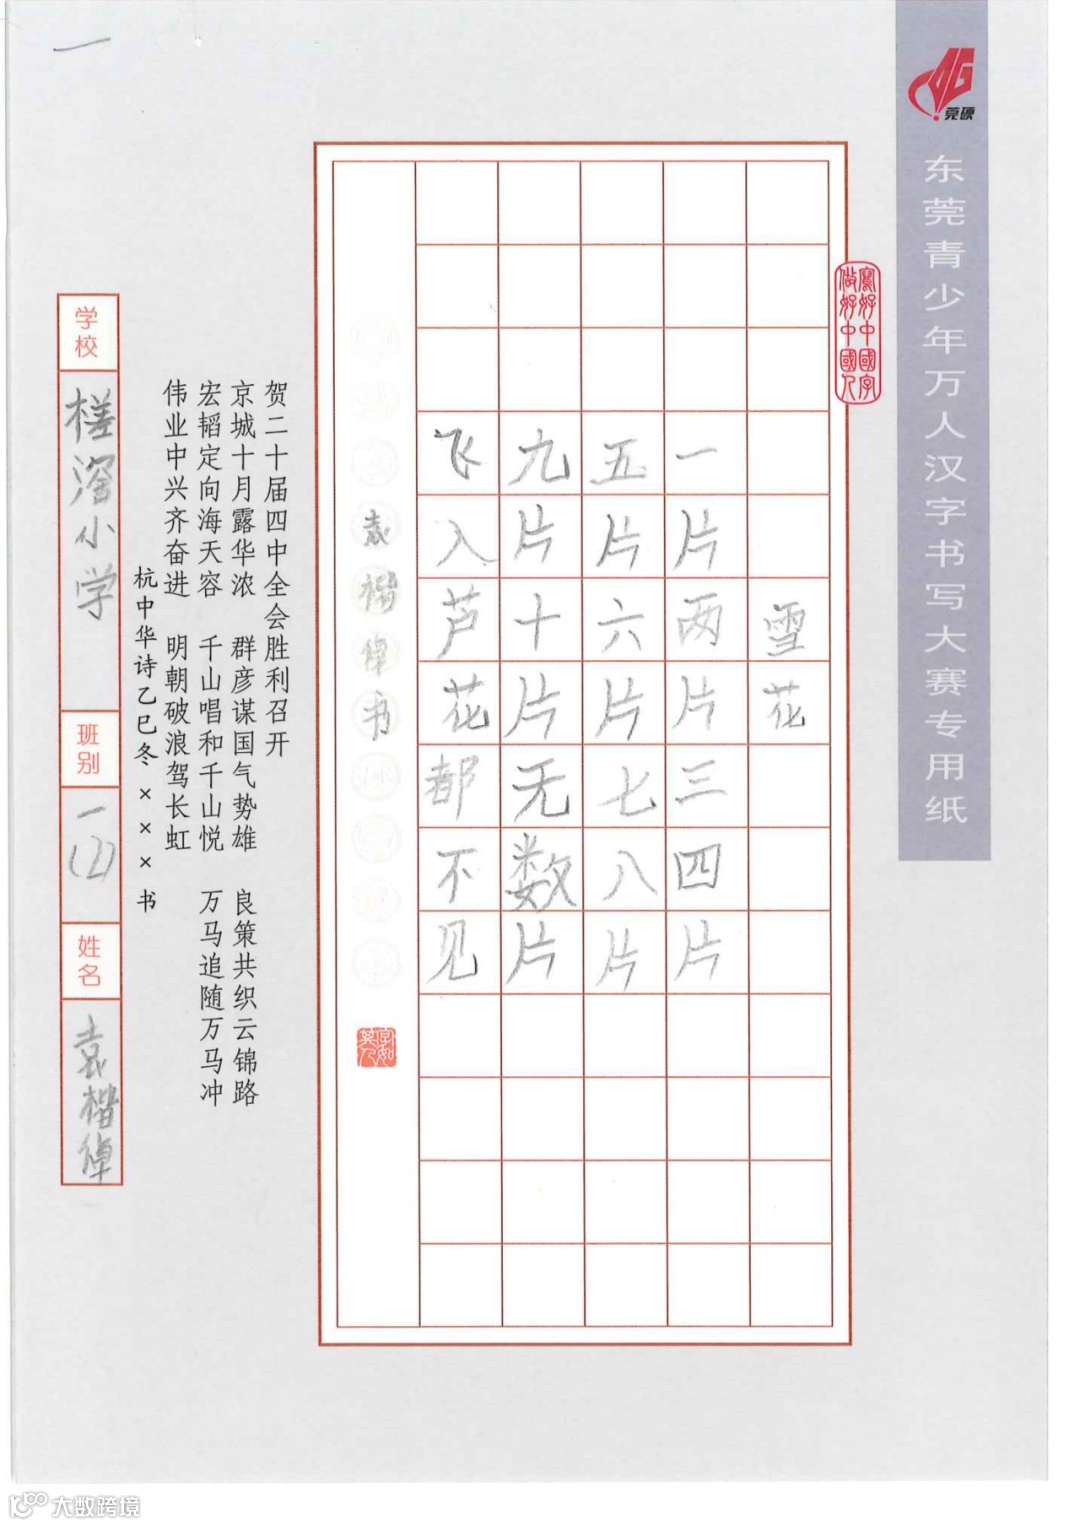 一
莞硬
东莞青少年万人汉字书写大赛专用纸
寫好中國字
做好中國人
雪花
一片两片三四片
五片六片七八片
九片十片无数片
飞入芦花都不见
袁楷倬书
贺二十届四中全会胜利召开
京城十月露华浓 群彦谋国气势雄 良策共织云锦路
宏韬定向海天容 千山唱和千山悦 万马追随万马冲
伟业中兴齐奋进 明朝破浪驾长虹
杭中华诗乙巳冬×××书
学校
槎滘小学
班别
一(2)
姓名
袁楷倬
大数跨境